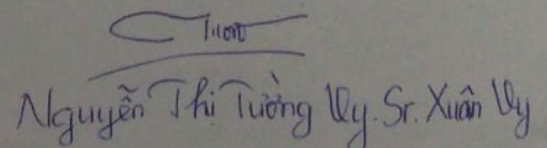 Nguyễn Thị Tường Vy. Sr. Xuân Vy